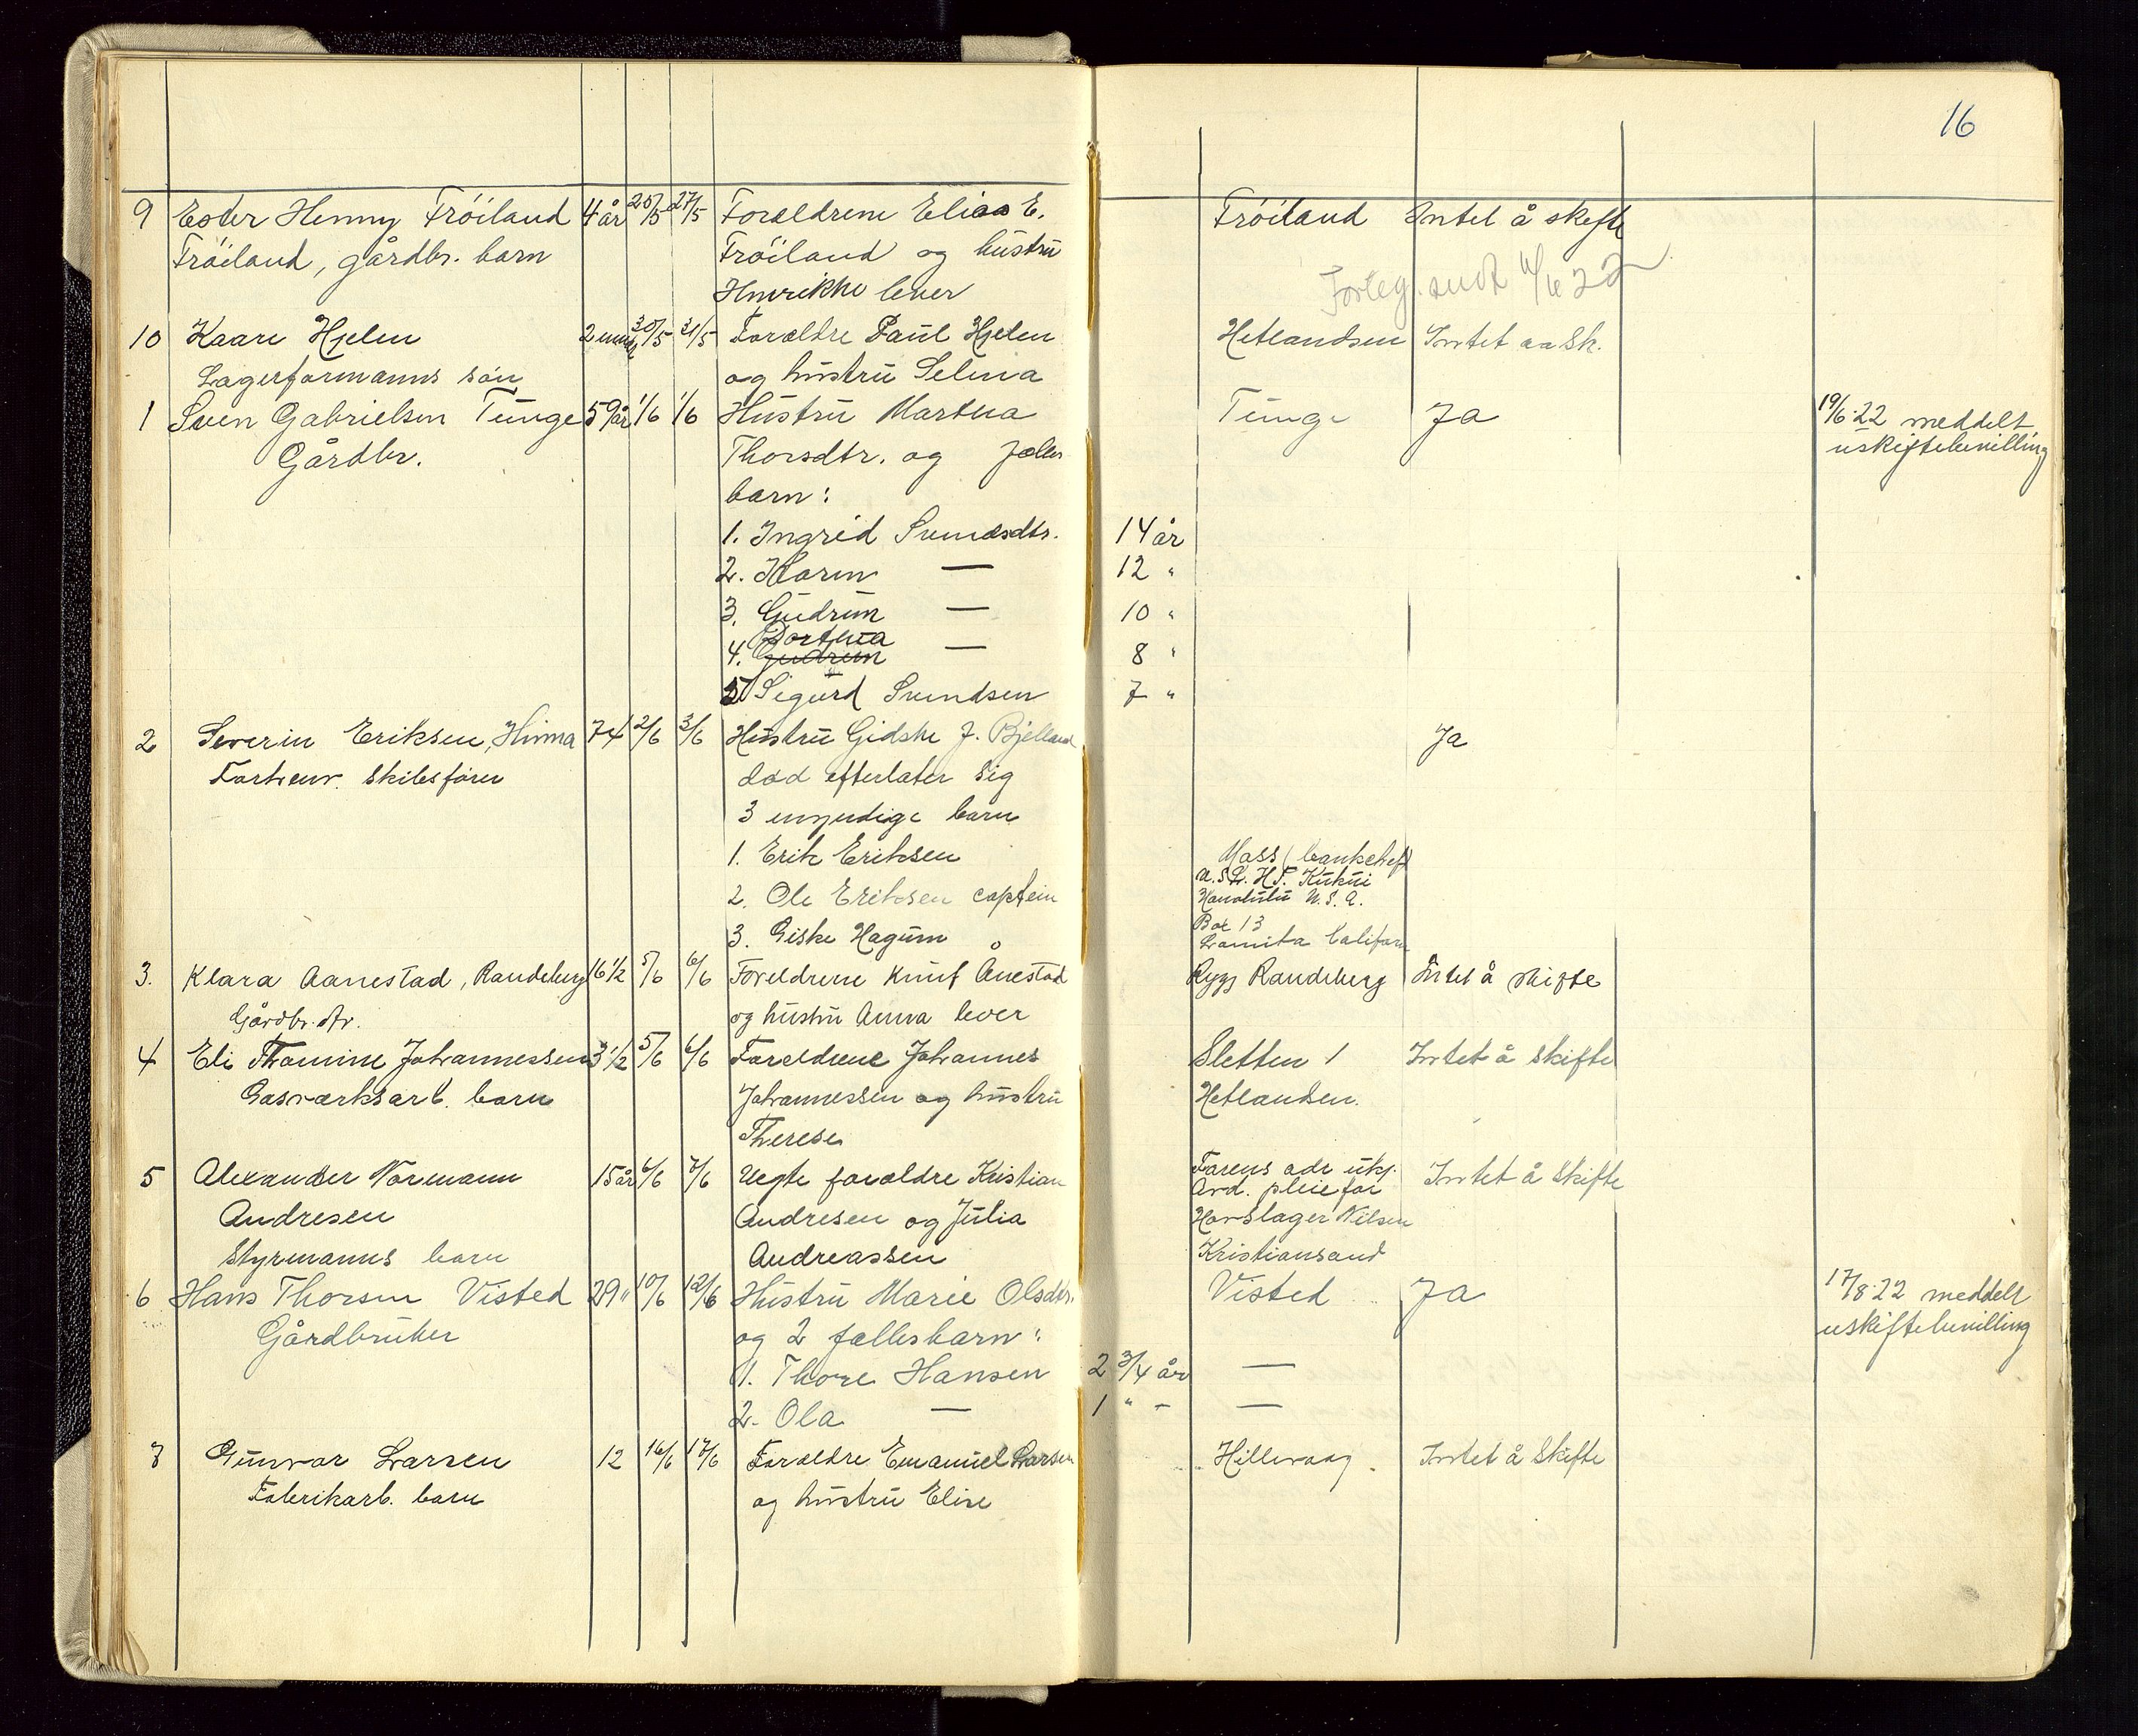 16
9 Ester Henny Fröiland 4 år 25/5 27/5 Forældrene Elias E. Fröiland Intet å skifte
Fröiland, gårdbr. barn Fröiland og hustru
Henrikke lever Forleg. sendt 22
10 Kaare Hjelen 2 mndr 30/5 31/5 Forældre Paul Hjelen Hetlandsm Intet aa Sk.
Lagerformanns sön og hustru Selma
1 Sven Gabrielsen Tunge 59 år 1/6 1/6 Hustru Martha Tunge Ja 19/6.22 meddelt
Gårdbr. Thorsdtr. og fælles uskiftebevilling
barn:
1. Ingrid Svendsdtr. 14 år
2. Karen — 12 "
3. Gudrun — 10 "
4. Gudrun Dorthea — 8 "
5 Sigurd Svendsen 7 "
2 Severin Eriksen, Hinna 74 2/6 3/6 Hustru Gidske J. Bjelland Ja
Forhenv. skibsförer död efterlater sig
3 umyndige barn
1. Erik Eriksen Mass (bankchef)
2. Ole Eriksen captein U.S.L.H.T. Kukui
Honolulu U.S.A.
3. Giske Hagum Box 13
Lomita Californ
3. Klara Aanestad, Randeberg 16 1/2 5/6 6/6 Foreldrene Knut Anestad Rygg Randeberg Intet å skifte
Gårdbr. dtr. og hustru Anna lever
4 Eli Thomine Johannessen 3 1/2 5/6 6/6 Foreldrene Johannes Sletten 1 Intet å skifte
Gasværksarb. barn Johannessen og hustru Hetlandsm.
Therese
5 Alexander Normann 15 år 6/6 7/6 Uegte forældre Kristian Farens adr ukj. Intet å skifte
Andresen Andresen og Julia Avd. pleiefar
Styrmanns barn Andreassen Hovslager Nilsen
Kristiansand
6 Hans Thorsen Visted 29 " 10/6 12/6 Hustru Marie Olsdtr. Visted Ja 17/8.22 meddelt
Gårdbruker og 2 fællesbarn: uskiftebevilling
1. Thore Hansen 2 3/4 år —
2. Ola — 1 " - —
7 Gunvor Larsen 12 16/6 17/6 Forældre Emanuel Larsen Hillevaag. Intet å skifte
Fabrikarb. barn og hustru Elise